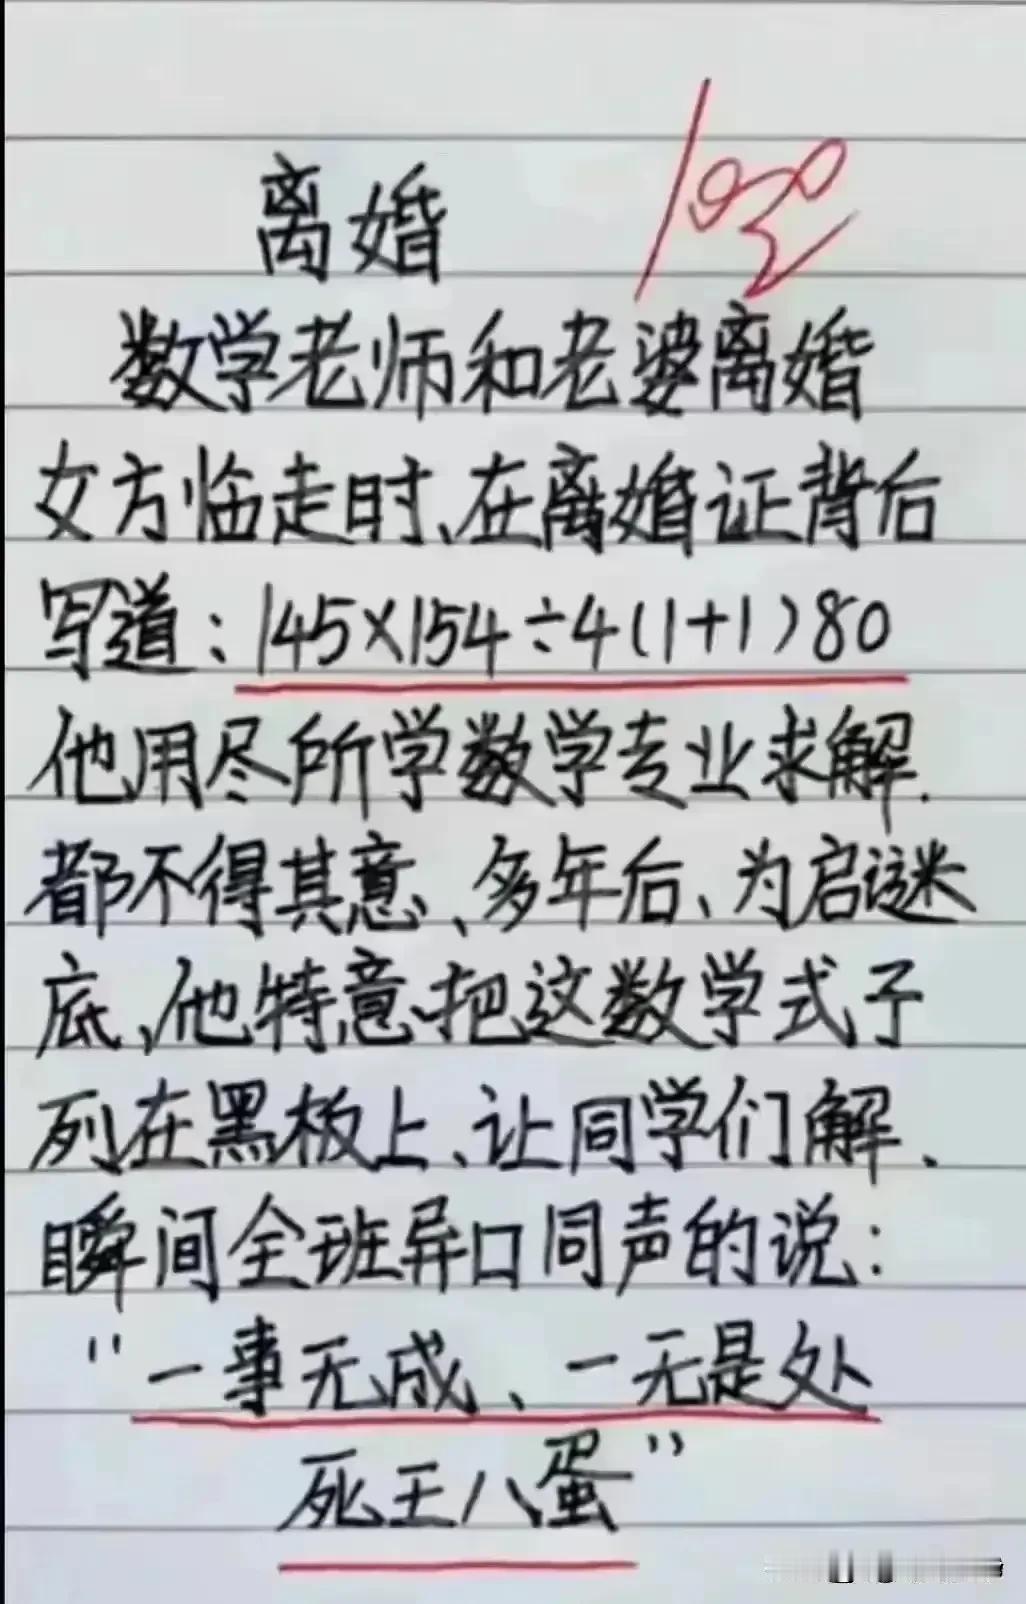 离婚
100
数学老师和老婆离婚
女方临走时、在离婚证背后
写道：145×154÷4(1+1)80
他用尽所学数学专业求解.
都不得其意、多年后、为启谜
底、他特意把这数学式子
列在黑板上、让同学们解、
瞬间全班异口同声的说：
“一事无成、一无是处
死王八蛋”